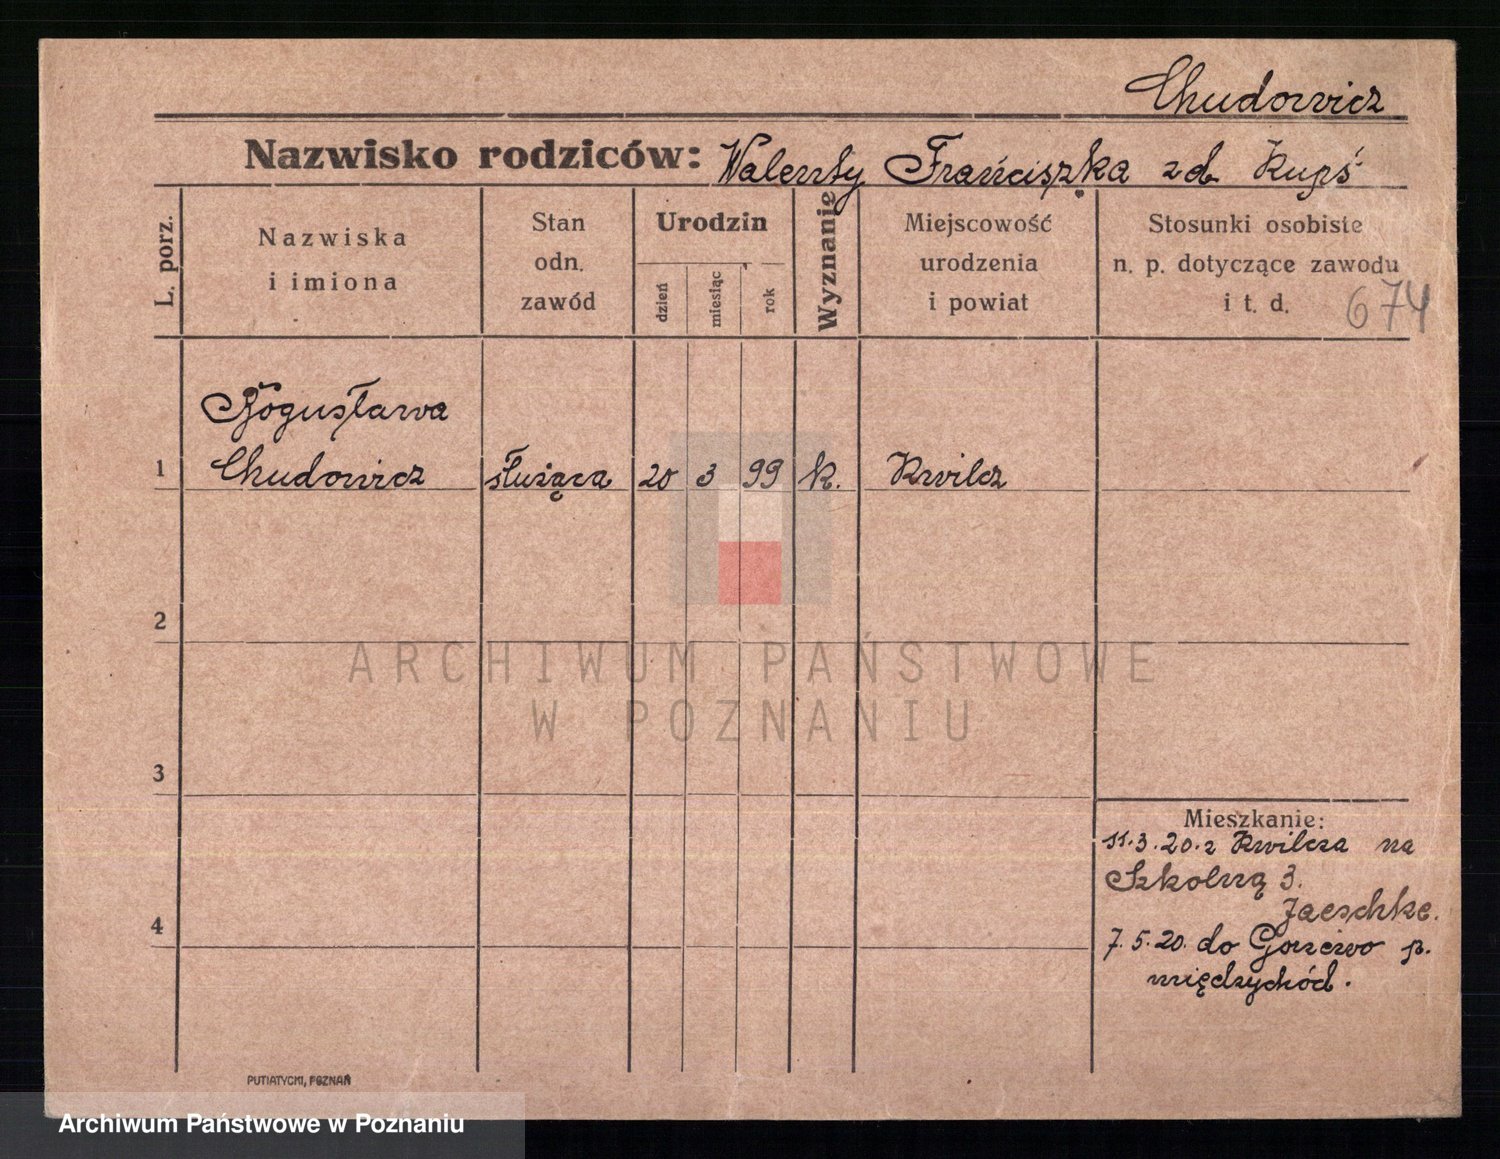 Chudowicz
Nazwisko rodziców: Walenty Franciszka zd. Kupś
L. porz.
Nazwiska
i imiona
Stan
odn.
zawód
Urodzin
dzień
miesiąc
rok
Wyznanie
Miejscowość
urodzenia
i powiat
Stosunki osobiste
n. p. dotyczące zawodu
i t. d.
674
Bogusława
1 Chudowicz służąca 20 3 99 k. Kwilcz
2
ARCHIWUM PAŃSTWOWE
W POZNANIU
3
4
Mieszkanie:
11.3.20. z Kwilcza na
Szkolną 3.
Jaeschke.
7.5.20. do p.
międzychód.
PUTIATYCKI, POZNAŃ
Archiwum Państwowe w Poznaniu